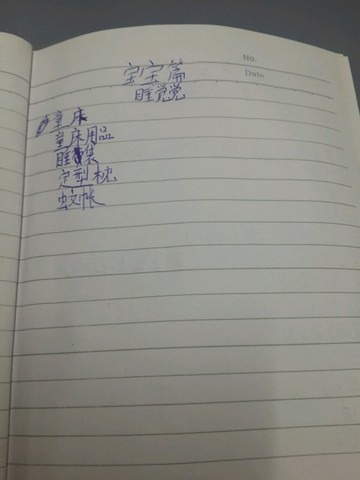 No.
Date
宝宝篇
睡觉
童床
童床用品
睡袋
定型枕
蚊帐